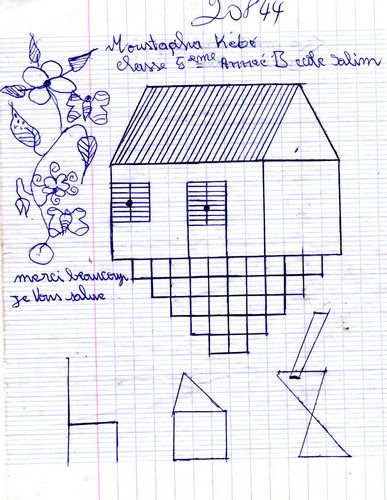 20844
Moustapha Kébé
classe 5eme Année B ecole Salim
merci beaucoup
je vous salue